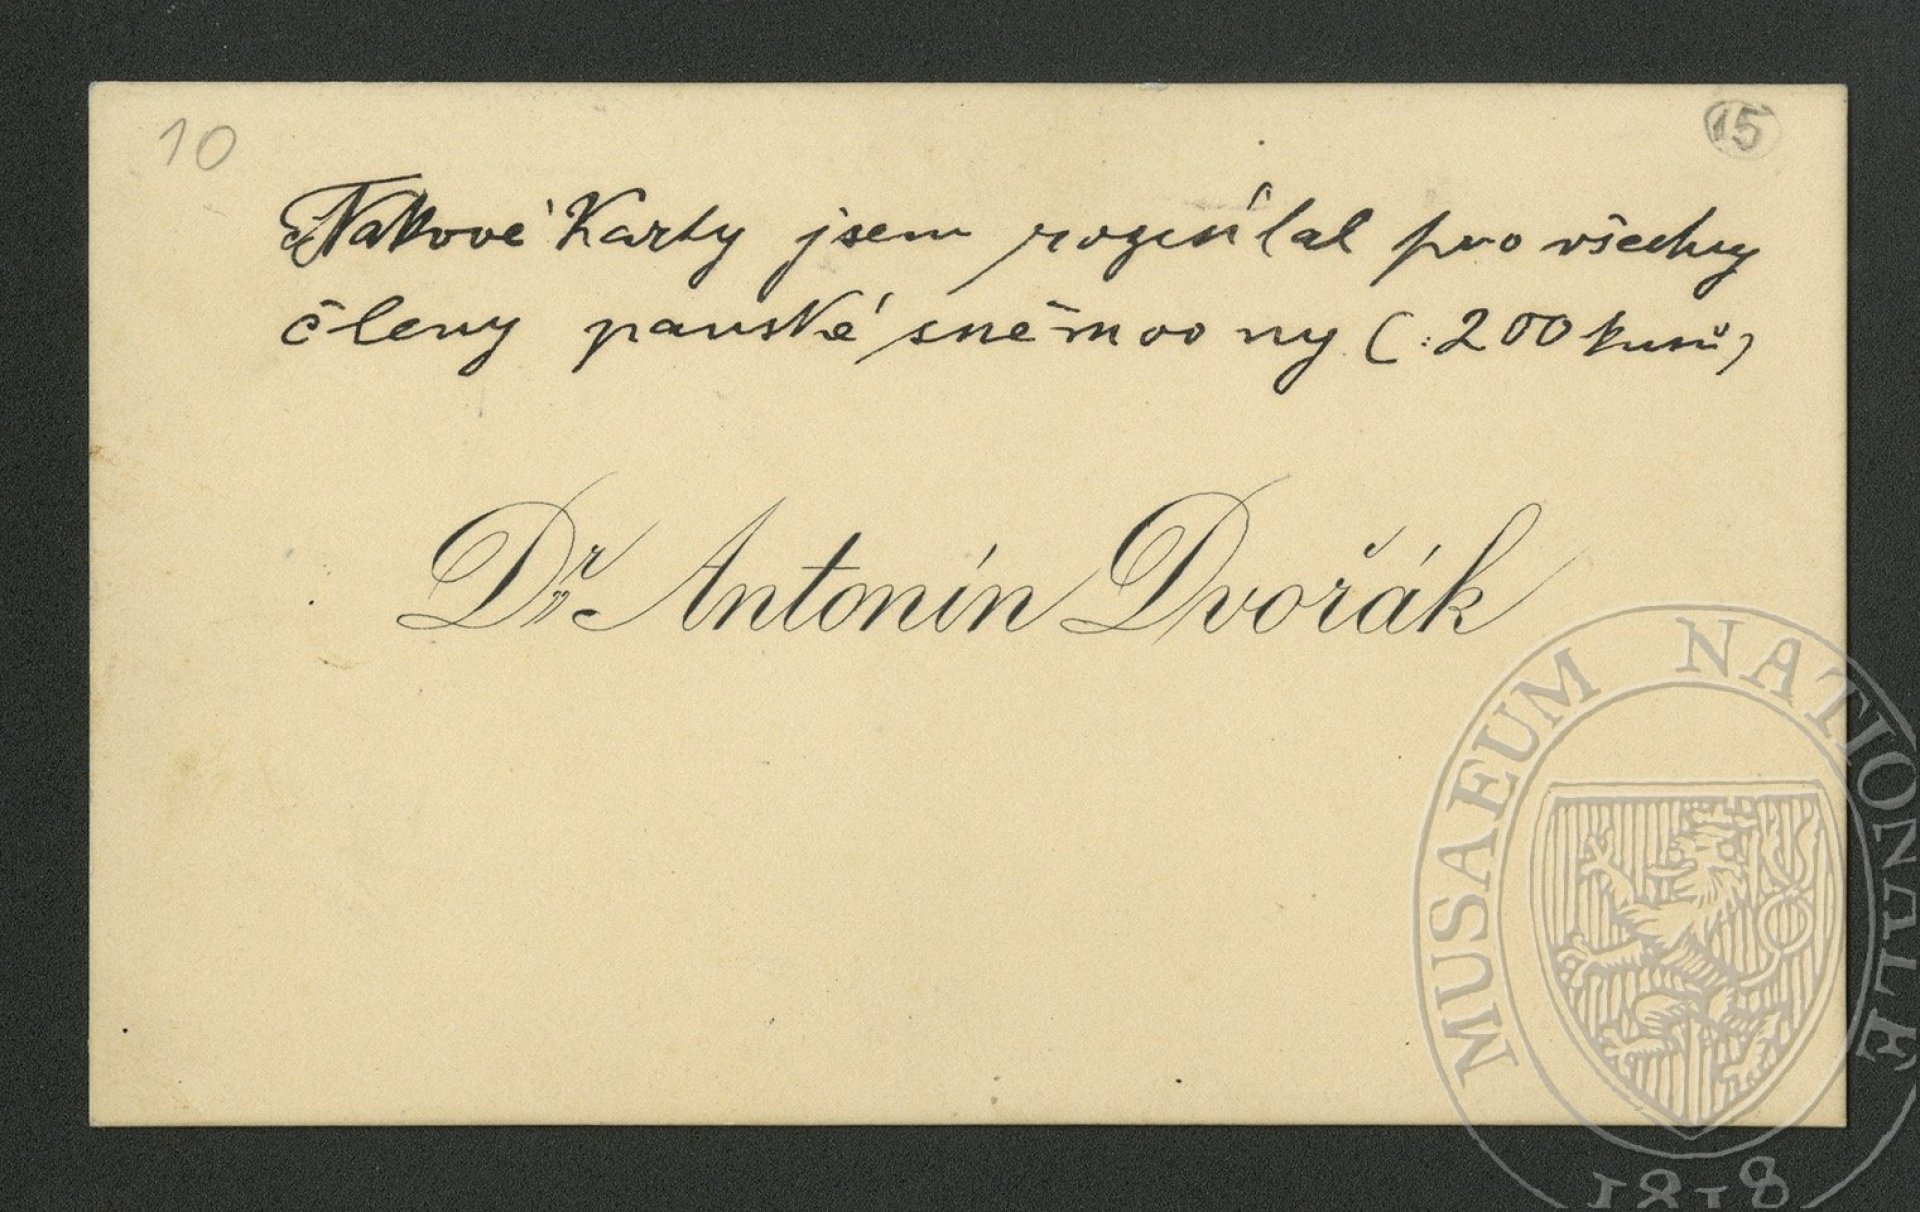 10
15
Takové Karty jsem rozesílal pro všechny
členy panské sněmovny (: 200 kusů)
Dr. Antonín Dvořák
MUSAEUM NATIONALE
1818